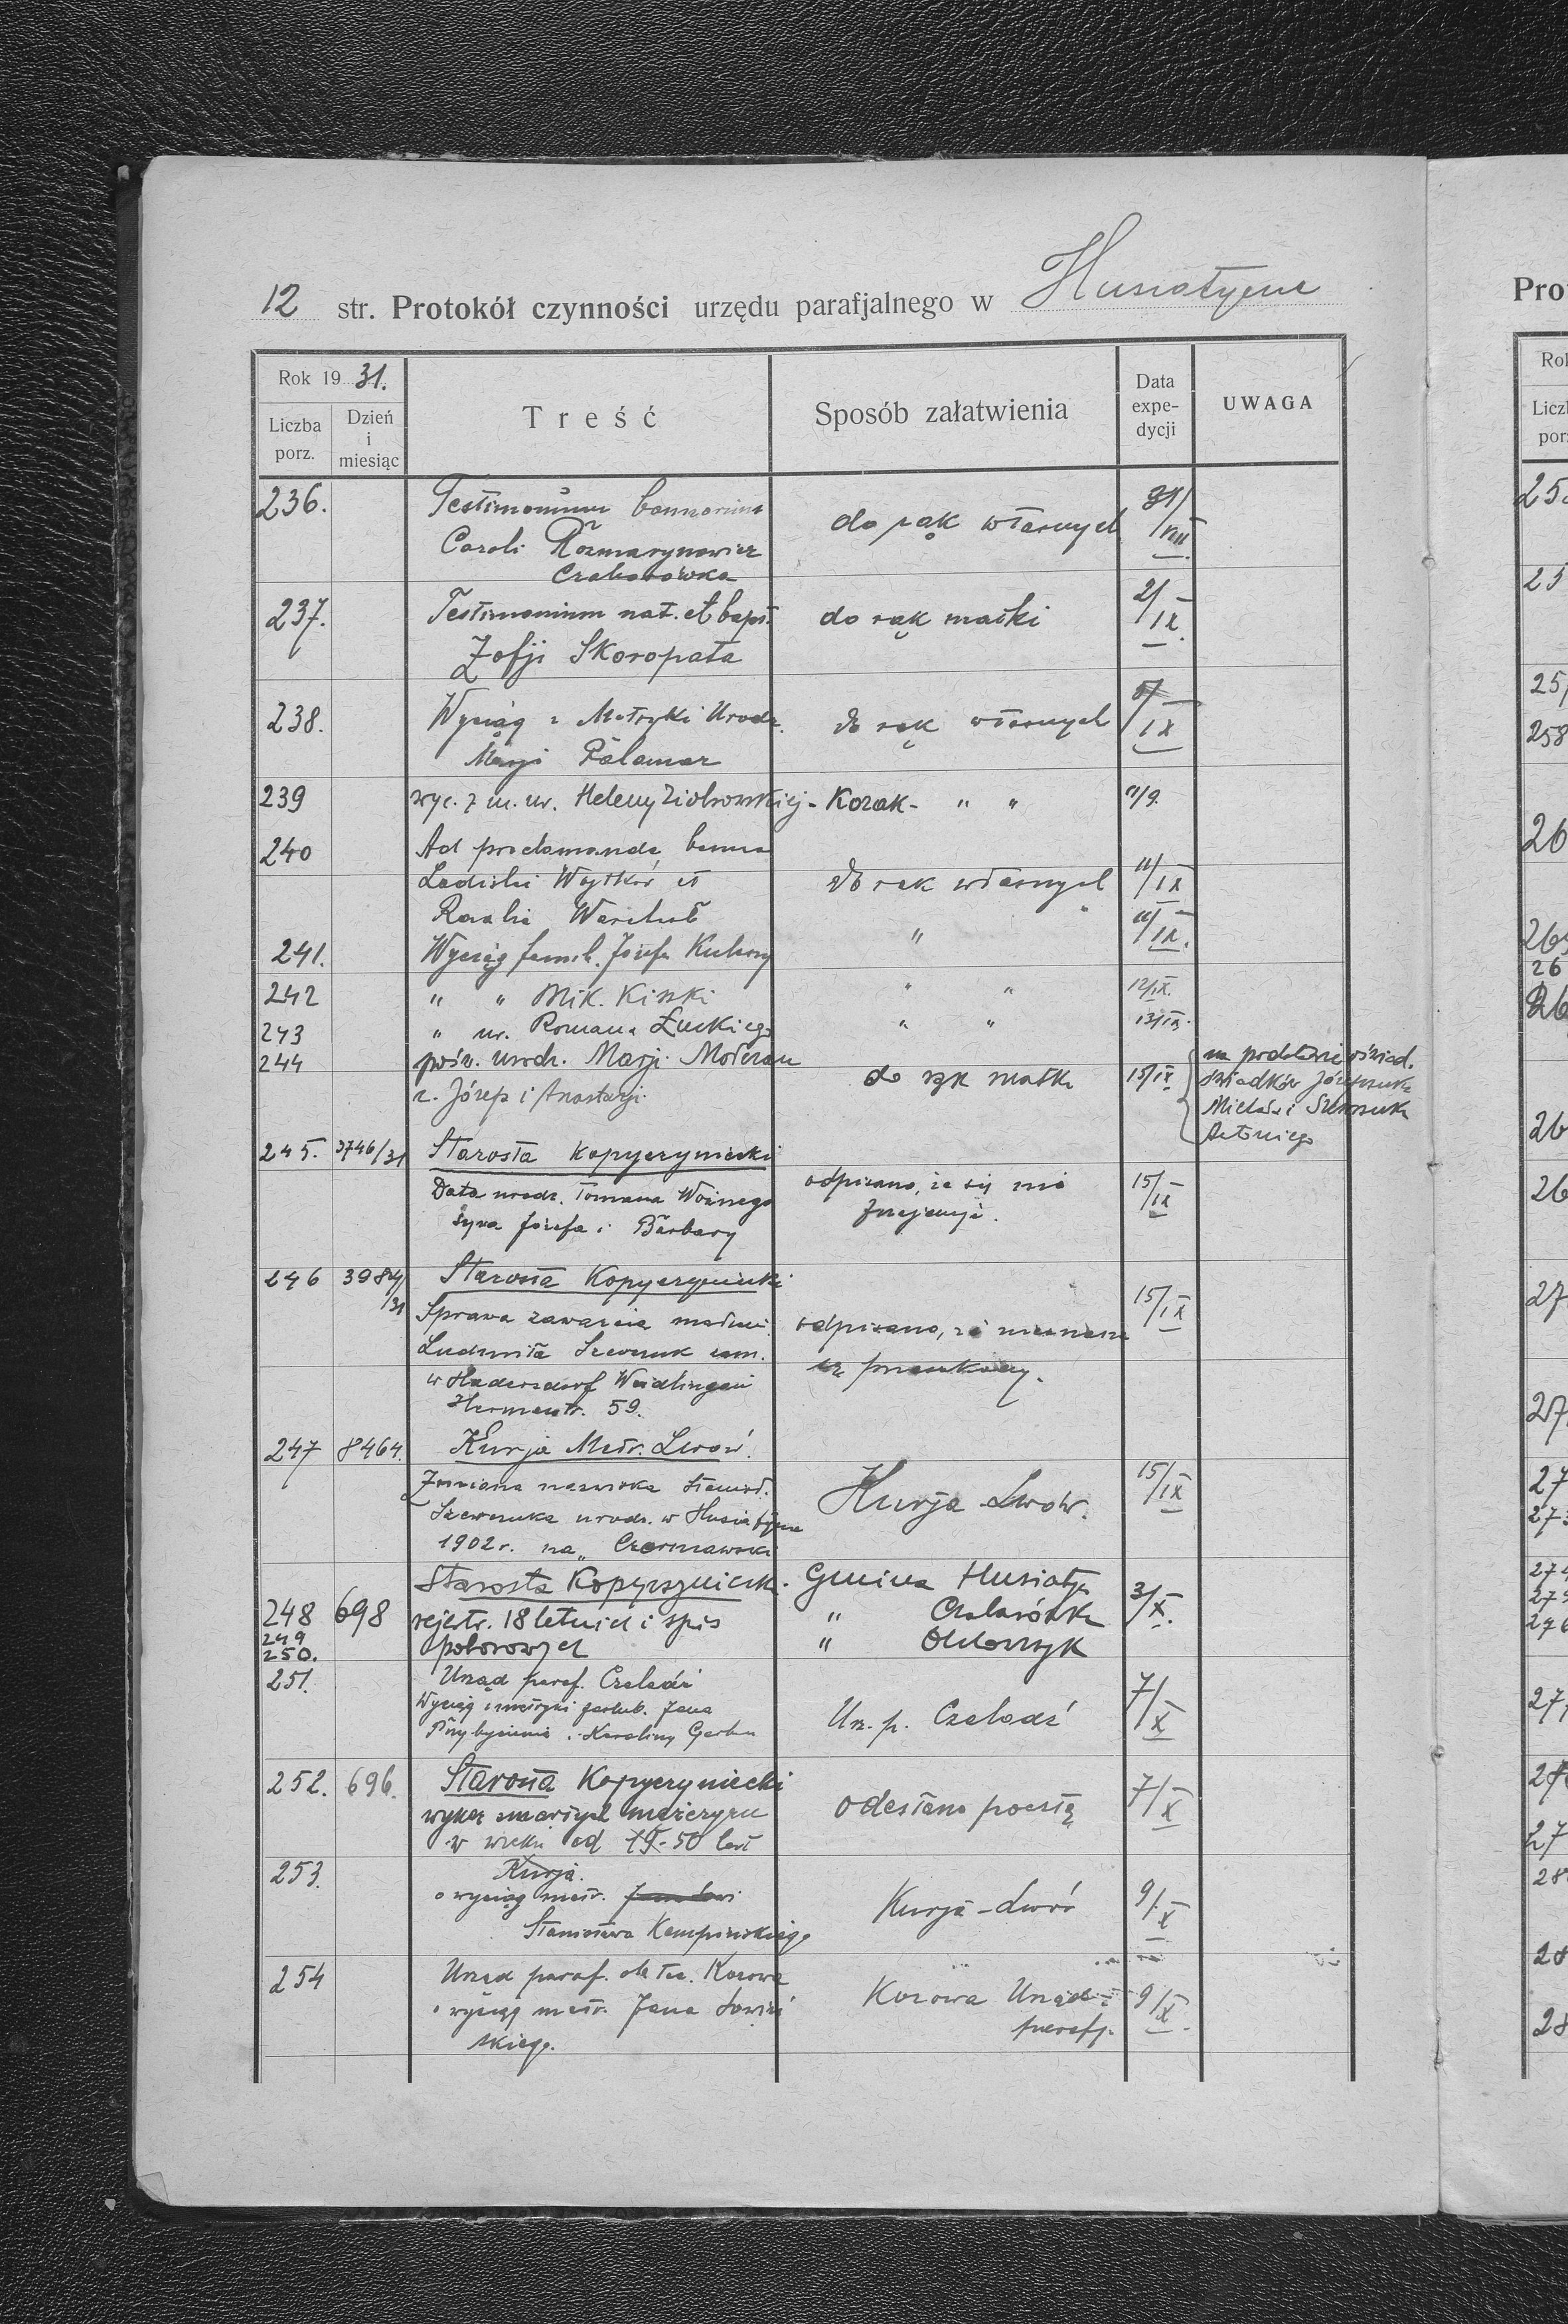 12 str. Protokół czynności urzędu parafjalnego w Husiatynie
Rok 19 31.
Liczba porz.
Dzień i miesiąc
Treść
Sposób załatwienia
Data expe-dycji
UWAGA
236. Testimonium bannorum do rąk własnych 31/VIII
Caroli Rozmarynowicz
Czabarówka
237. Testimonium nat. et bapt. do rąk matki 2/IX.
Zofji Skoropata
238. Wyciąg z Metryki Urodz. do rąk własnych 5/IX
Marji Palamar
239 wyc. z m. ur. Heleny Ziołkowskiej - Kozak - " " 11/9.
240 Ad proclamanda banna
Ladislai Wojtków et do rąk własnych 11/IX
Rosalia
241. Wyciąg Józefa " 11/IX.
242 " " Mik. Kinki " " 12/IX.
243 " ur. Romana Łuckiego " " 13/IX.
244 pośw. urodz. Marji do rąk matki 15/IX na podstawie oświad.
z. Józefa i Anastazji świadków Józefczuka
Michała i
Antoniego
245. 3746/31 Starosta Kopyczyniecki
Data urodz. Tomasza Woźnego odpisano, że się nie 15/IX
syna Józefa i Barbary znajduje.
246 3984/31 Starosta Kopyczyniecki 15/IX
Sprawa zawarcia małżeń. odpisano, że
Ludmiła Szewczuk zam. przeszkody.
w Hadersdorf Weidlingau
59.
247 8464. Kurja Metr. Lwów.
Zmiana nazwiska Kurja Lwów. 15/IX
Szewczuka urodz. w Husiatynie
1902 r. na „Czerniawski
Starosta Kopyczyniecki. Gmina Husiatyn
248 698 rejestr. 18 letnich i spis " Czabarówka 3/X.
249
250. poborowych " Olchowczyk
251. Urząd paraf. Czeladź
Wyciąg z metryki zaślub. Jana Urz. p. Czeladź 7/X
i Karoliny
252. 696. Starosta Kopyczyniecki
wykaz zmarłych mężczyzn odesłano pocztą 7/X
w wieku od 19-50 lat
253. Kurja.
o wyciąg metr. Kurja - Lwów 9/X
Stanisława Kempińskiego
254 Urząd paraf. Kozowa
o wyciąg metr. Jana Kozowa Urząd 9/X.
skiego. parafj.